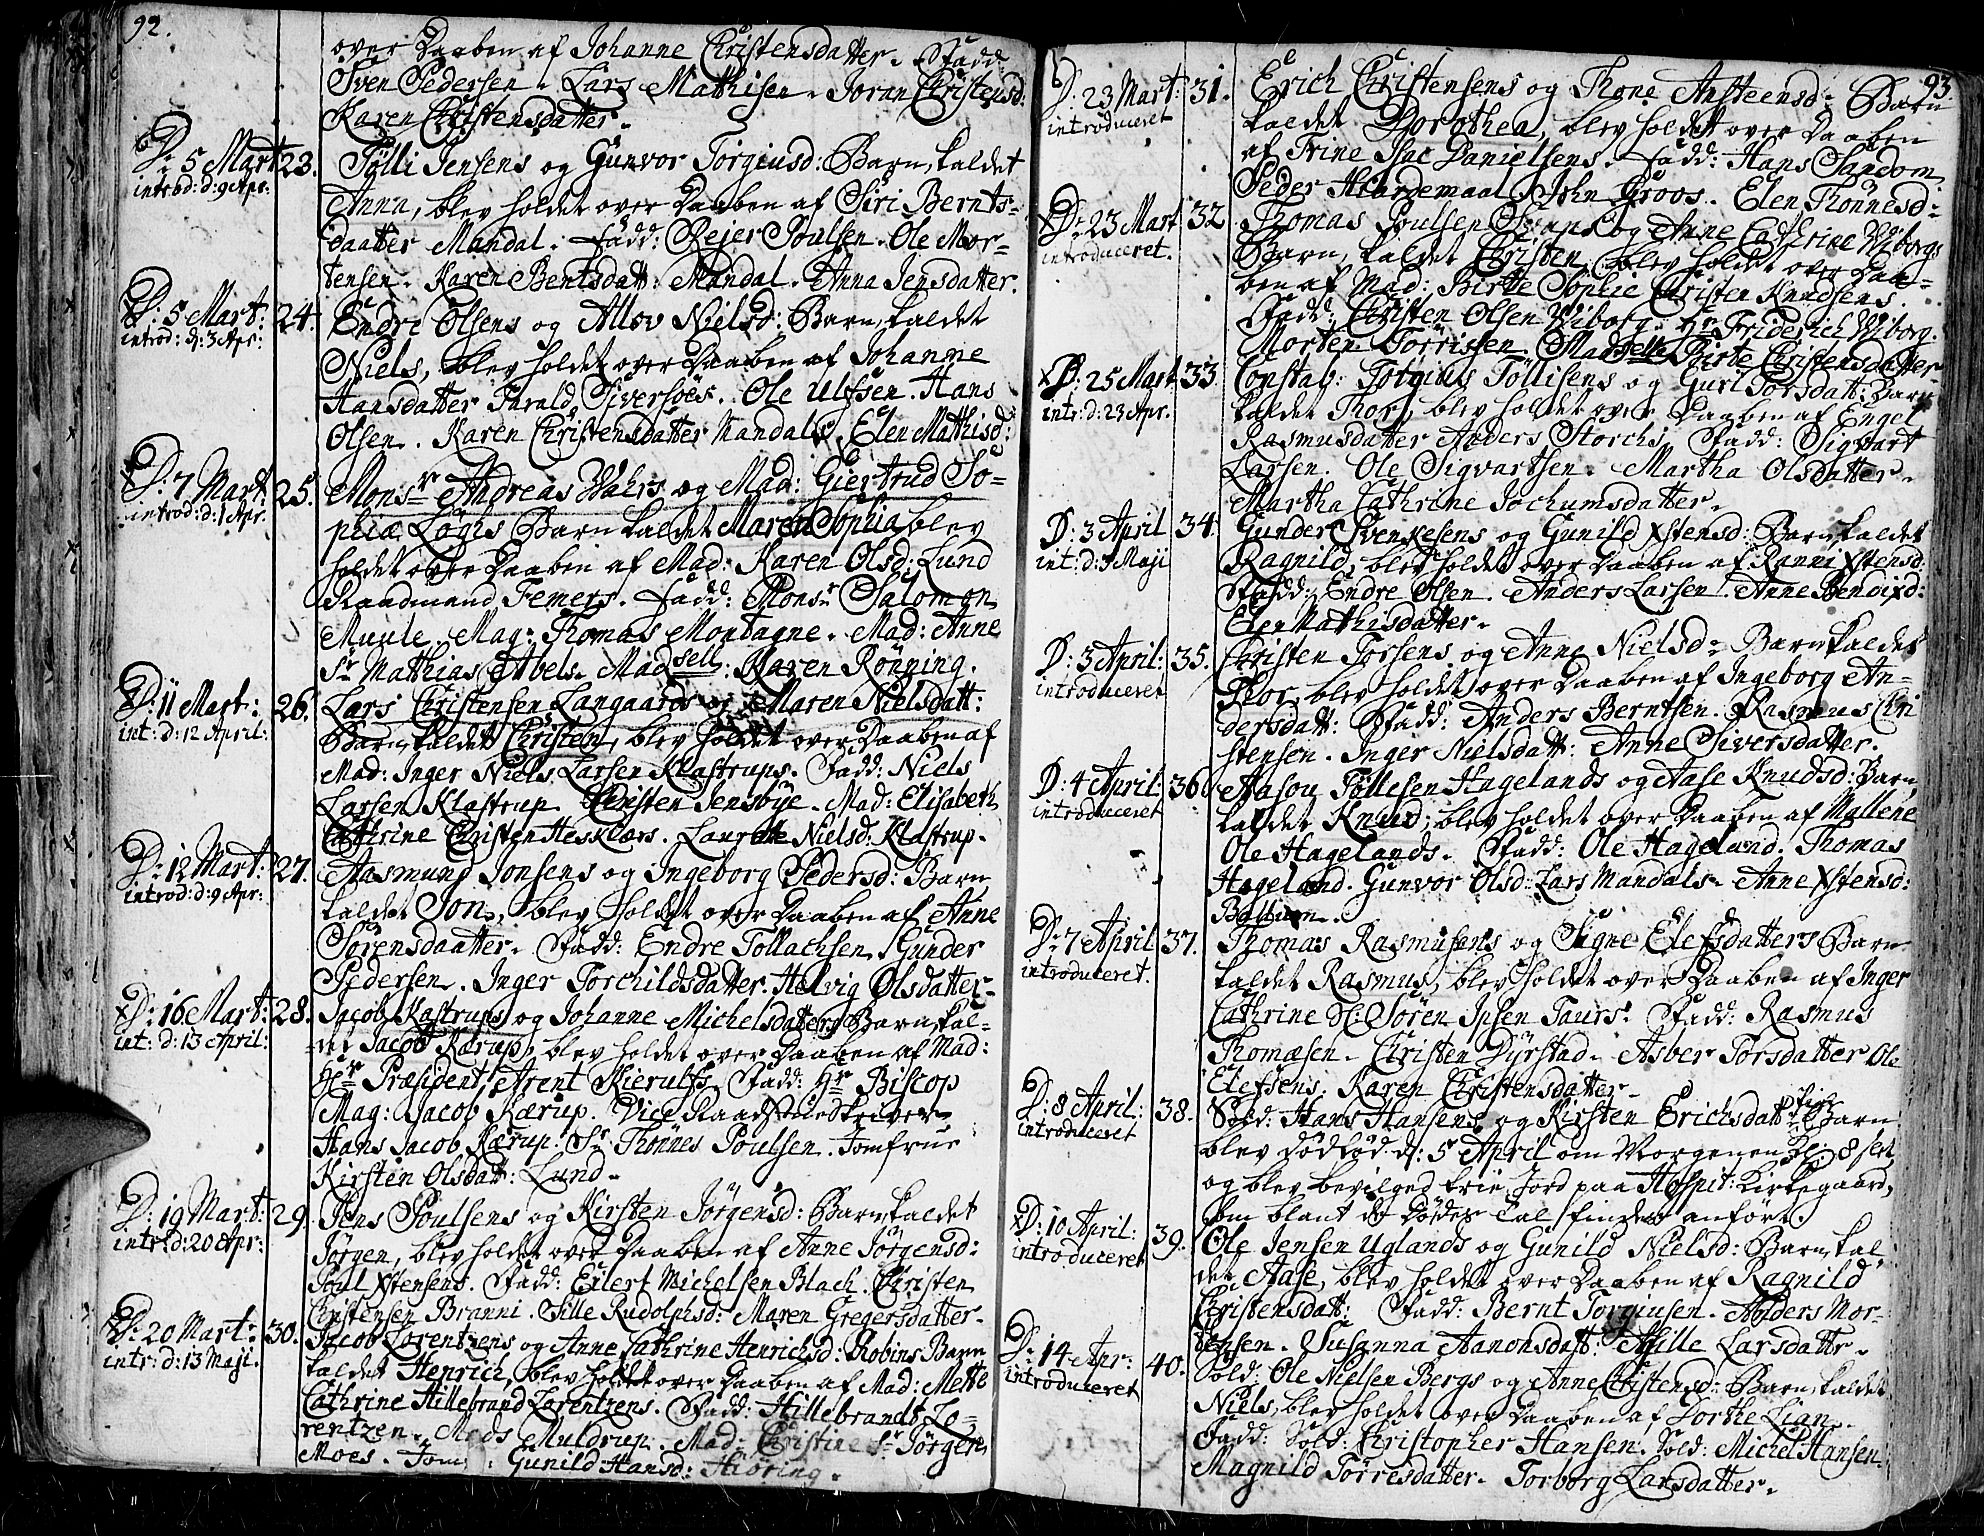 92.
over Daaben af Johanne Christensdatter. Fadd:
Sven Pedersen. Lars Mathisen. Joran Christensd:
Karen Christensdatter.
D: 5 Mart: 23. Tölli Jensens og Gunvor Torgiusd: Barn, kaldet
introd: d: 9 Apr: Anna, blev holdet over Daaben af Siri Bernts-
daatter Mandal. Fadd: Rejer Poulsen. Ole Mor-
tensen. Karen Bentsdatt: Mandal. Anna Jensdatter.
D: 5 Mart: 24. Endre Olsens og Allov Nielsd: Barn, kaldet
introd: d: 3 Apr: Niels, blev holdet over Daaben af Johanne
Hansdatter Harald Siversöes. Ole Ulfsen. Hans
Olsen. Karen Christensdatter Mandals. Elen Mathisd:
D: 7 Mart: 25. Monsr Andreas Wahrs og Mad: Giertrud So-
introd: d: 1 Apr. phiæ Löghs Barn kaldet Maren Sophia blev
holdet over Daaben af Mad: Karen Olsd: Lund
Raadmand Femers. Fadd: Monsr Salomon
Muule. Mag: Thomas Montagne. Mad: Anne
Sr Mathias Abels. Madsell: Karen Rönning.
D: 11 Mart: 26. Lars Christensen Langaards og Maren Nielsdatt:
int: d: 12 April: Barn, kaldet Christen, blev holdet over Daaben af
Mad: Inger Niels Larsen Klastrups. Fadd: Niels
Larsen Klastrup. Christen Jensbye. Mad: Elisabeth
Cathrine Christen Hesklærs. Laurette Nielsd: Klastrup.
D: 12 Mart: 27. Aasmund Jonsens og Ingeborg Pedersd: Barn
introd: d: 9 Apr: kaldet Jon, blev holdet over Daaben af Anne
Sörensdaatter. Fadd: Endre Tollachsen. Gunder
Pedersen. Inger Torchildsdatter. Helvig Olsdatter.
D: 16 Mart: 28. Jacob Kastrups og Johanne Michelsdatters Barn, kal-
int: d: 13 April: det Jacob Kærup, blev holdet over Daaben af Mad:
Hr Præsident Arent Kierulfs. Fadd: Hr Biscop
Mag: Jacob Kærup. Vice Raadstuedskriver
Hans Jacob Kærup. Sr Thönnes Poulsen. Jomfrue
Kirsten Olsdatt: Lund.
D: 19 Mart: 29. Jens Poulsens og Kirsten Jörgensd: Barn, kaldet
intr: d: 20 Apr: Jörgen, blev holdet over Daaben af Anne Jörgensd:
Poul Xstensens. Fadd: Eilert Michelsen Blach. Christen
Christensen Branni. Sille Rudolphsd: Maren Gregersdatter.
D: 20 Mart: 30. Jacob Lorentzens og Anne Cathrine Henrichsd: Robins Barn
intr: d: 13 Maji. kaldet Henrich, blev holdet over Daaben af Mad: Mette
Cathrine Hillebrand Lorentzens. Fadd: Hillebrandt Lo-
rentzen. Mads Muldrup. Mad: Christine Sr Jörgen
Moes. Jom: Gunild Hansd: Hiöring.
93
D: 23 Mart: 31. Erich Christensens og Thone Ansteensd: Barn
introduceret kaldet Dorothea, blev holdet over Daaben
af Trine Isac Danielsens. Fadd: Hans Sandom
Peder Hiardemaal. John Groos. Elen Thönnesd:
D: 23 Mart 32. Thomas Poulsen Svane og Anne Cathrine Wiborgs
introduceret. Barn, kaldet Christen, blev holdet over Daa-
ben af Mad: Birtte Sophie Christen Knudsens.
Fadd: Christen Olsen Wiborg. Hr Friderich Wiborg.
Morten Törrissen. Madselle Birte Christensdatter
D: 25 Mart 33. Constab: Torgius Töllisens og Guri Torsdatt: Barn
intr: d: 23 Apr. kaldet Thor, blev holdet over Daaben af Engel
Rasmusdatter Anders Storchs. Fadd: Sigvart
Larsen. Ole Sigvartsen. Martha Olsdatter.
Martha Cathrine Jochumsdatter.
D: 3 April 34. Gunder Svenkesens og Gunild Xstensd: Barn, kaldet
int: d: 3 Maji Ragnild, blev holdet over Daaben af Ranni Xstensd:
Fadd: Endre Olsen. Anders Larsen. Anne Bendixd:
Elen Mathisdatter.
D: 3 April: 35. Christen Torsens og Anne Nielsd: Barn kaldet
introduceret Thor, blev holdet over Daaben af Ingeborg An-
dersdatt: Fadd: Anders Berntsen. Rasmus Chri
stensen. Inger Nielsdatt: Anne Siversdatter.
D: 4 April: 36. Aasou Töllesen Hagelands og Aase Knudsd: Barn,
introduceret kaldet Knud, blev holdet over Daaben af Mallene
Ole Hagelands. Fadd: Ole Hageland. Thomas
Hageland. Gunvor Olsd: Lars Mandals. Anne Xstensd:
D: 7 April 37. Thomas Rasmusens og Signe Elefsdatters Barn
introduceret. kaldet Rasmus, blev holdet over Daaben af Inger
Cathrine Sr: Sören Ipsen Taurs. Fadd: Rasmus
Thomæsen. Christen Dyrstad. Asber Torsdatter Ole
Elefsens. Karen Christensdatter.
D: 8 April: 38. Sold: Hans Hansens og Kirsten Erichsdatt: Barn
introduceret blev dödföd d: 5 April om Morgenen Kl: 8 slet,
og blev bevilged frie Jord paa Hospit: Kirkegaard,
som blant de Dödes Tal findes anfört.
D: 10 April: 39. Ole Jensen Uglands og Gunild Nielsd: Barn, kal
introduceret det Aase, blev holdet over Daaben af Ragnild
Christensdatt: Fadd: Bernt Torgiusen. Anders Mor-
tensen. Susanna Aanonsdatt: Sille Larsdatter.
D: 14 Apr: 40. Sold: Ole Nielsen Bergs og Anne Christensd: Barn, kaldet
introduceret Niels, blev holdet over Daaben af Dorthe Lian.
Fadd: Sold: Christopher Hansen. Sold: Michel Hansen.
Magnild Törresdatter. Torborg Larsdatter.